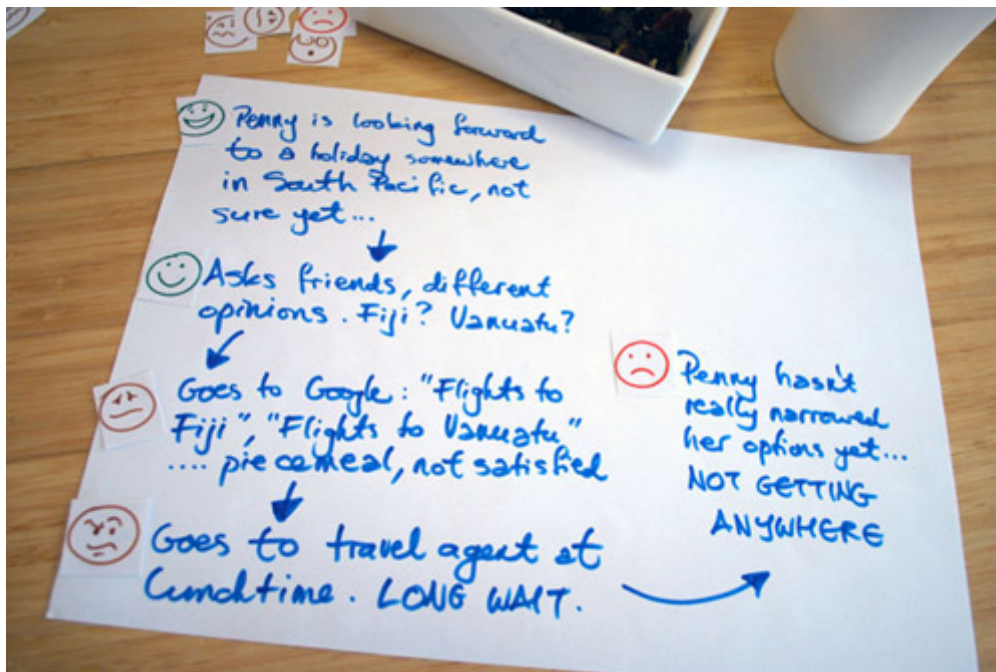 Penny is looking forward
to a holiday somewhere
in South Pacific, not
sure yet...
Asks friends, different
opinions. Fiji? Vanuatu?
Goes to Google: "Flights to
Fiji", "Flights to Vanuatu"
.... piecemeal, not satisfied
Goes to travel agent at
Lunchtime. LONG WAIT.
Penny hasn't
really narrowed
her options yet...
NOT GETTING
ANYWHERE